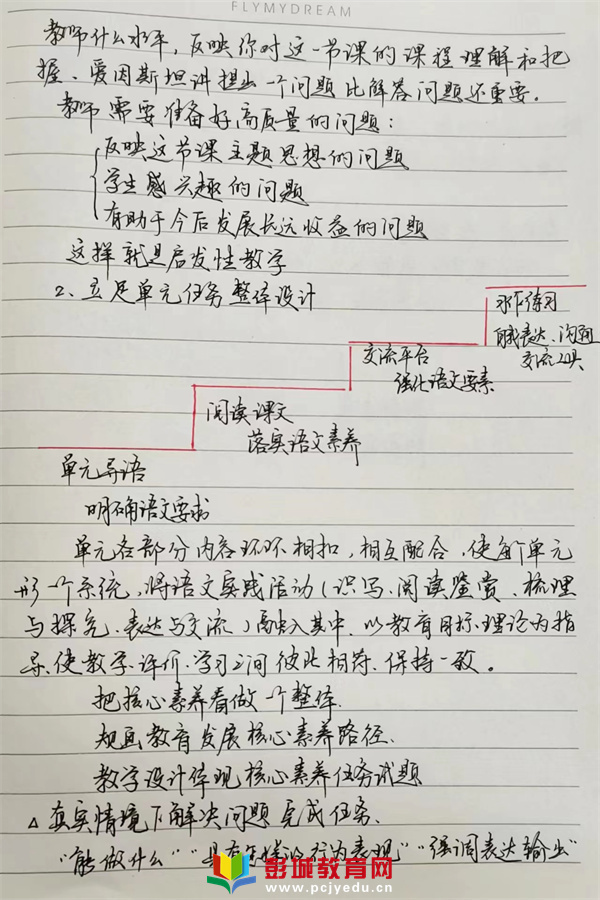 FLYMYDREAM
教师什么水平，反映你对这一节课的课程理解和把
握、爱因斯坦讲提出一个问题比解答问题还重要。
教师需要准备好高质量的问题：
反映这节课主题思想的问题
学生感兴趣的问题
有助于今后发展长远收益的问题
这样就是启发性教学
2、立足单元任务整体设计
习作练习
自我表达、沟通
交流工具
交流平台
强化语文要素
阅读课文
落实语文素养
单元导语
明确语文要求
单元各部分内容环环相扣，相互配合，使每个单元
形一个系统，将语文实践活动（识写、阅读鉴赏、梳理
与探究、表达与交流）融入其中、以教育目标、理论为指
导、使教学、评价、学习之间彼此相符、保持一致。
把核心素养看做一个整体、
规画教育发展核心素养路径、
教学设计体现核心素养任务试题
△真实情境下解决问题完成任务、
“能做什么”“具有怎样的行为表现”“强调表达输出”
彭城教育网
www.pcjyedu.cn